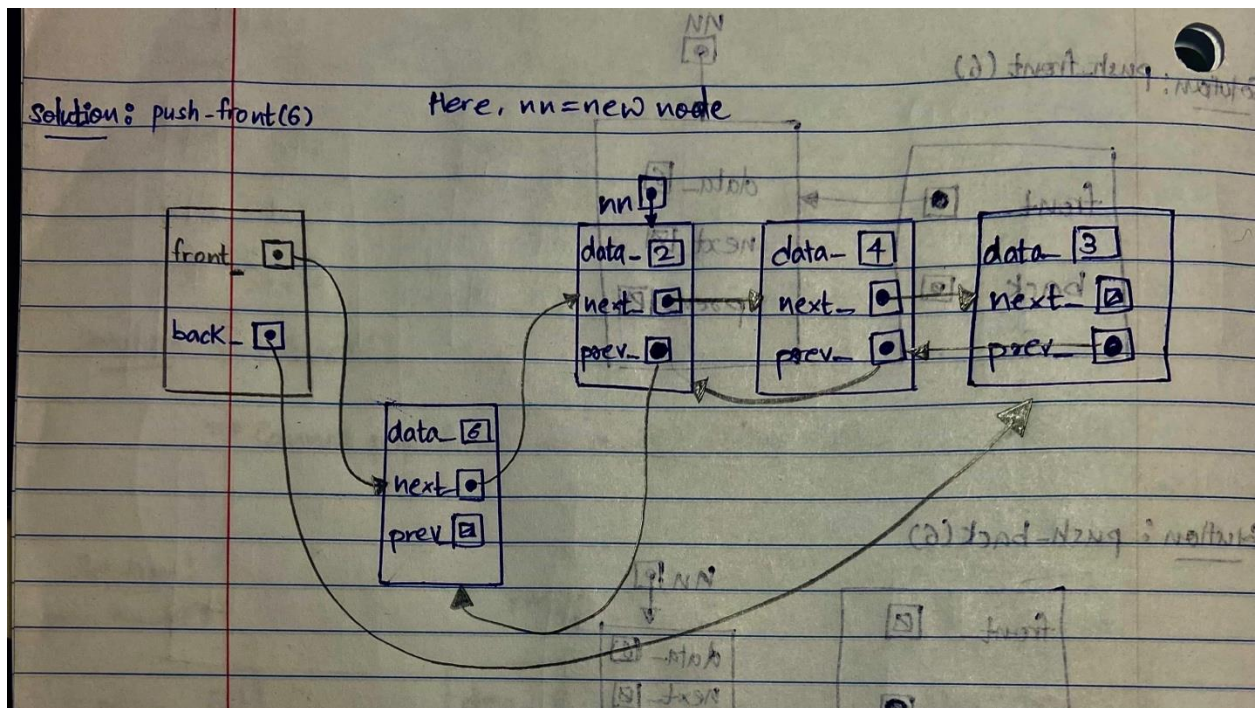 Solution: push-front(6) Here, nn=new node
nn
front_
back_
data_ 2
next_
prev_
data_ 4
next_
prev_
data_ 3
next_
prev_
data_ 6
next_
prev